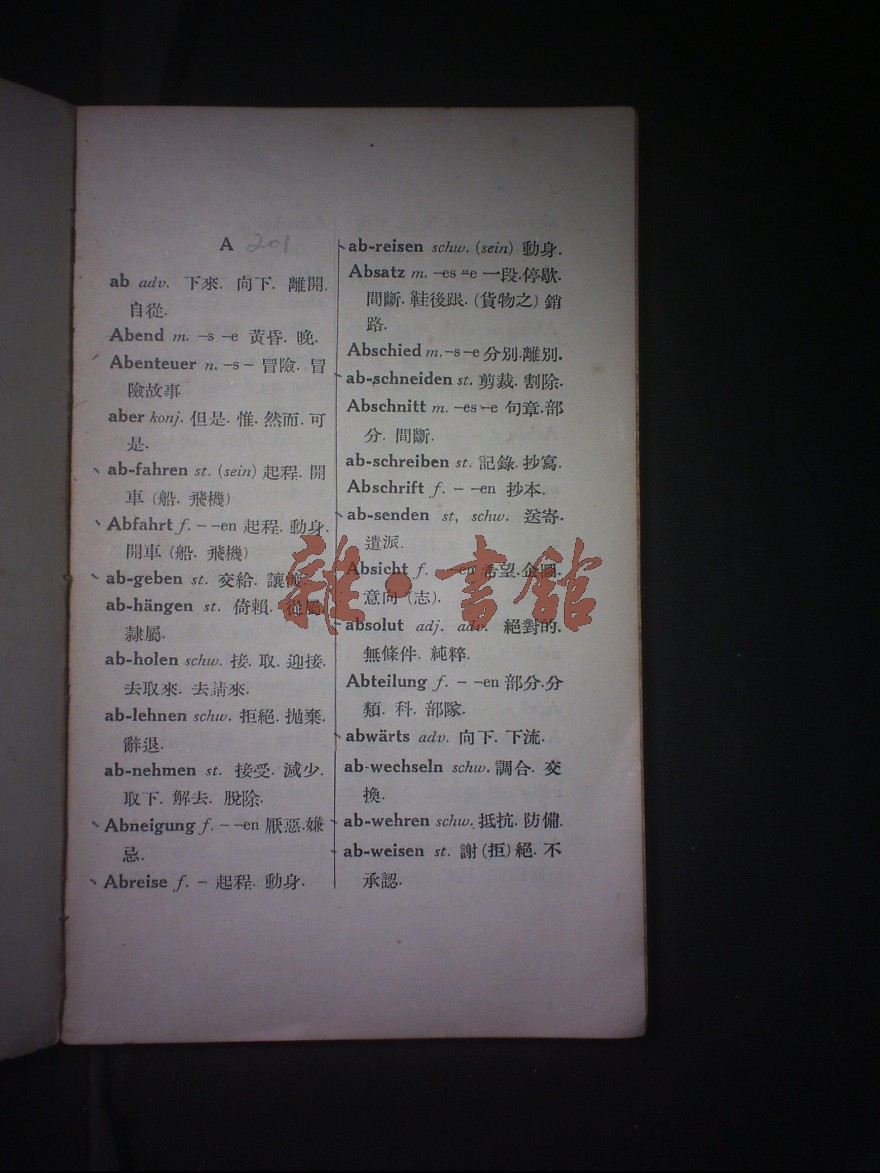 A 201
ab adv. 下來. 向下. 離開.
自從.
Abend m. –s –e 黄昏. 晚.
Abenteuer n. –s – 冒險. 冒
險故事
aber konj. 但是. 惟. 然而. 可
是.
ab-fahren st. (sein) 起程. 開
車 (船. 飛機)
Abfahrt f. – –en 起程. 動身.
開車 (船. 飛機)
ab-geben st. 交給. 讓渡.
ab-hängen st. 倚賴. 從屬.
隸屬.
ab-holen schw. 接. 取. 迎接.
去取來. 去請來.
ab-lehnen schw. 拒絕. 抛棄.
辭退.
ab-nehmen st. 接受. 減少.
取下. 解去. 脫除.
Abneigung f. – –en 厭惡.嫌
忌.
Abreise f. – 起程. 動身.
ab-reisen schw. (sein) 動身.
Absatz m. –es ⸚e 一段.停歇.
間斷. 鞋後跟. (貨物之) 銷
路.
Abschied m. –s –e 分别.離別.
ab-schneiden st. 剪裁. 割除.
Abschnitt m. –es –e 句章.部
分. 間斷.
ab-schreiben st. 記錄. 抄寫.
Abschrift f. – –en 抄本.
ab-senden st, schw. 送寄.
遣派.
Absicht f. – –en 希望.企圖.
意向 (志).
absolut adj. adv. 絕對的.
無條件. 純粹.
Abteilung f. – –en 部分.分
類. 科. 部隊.
abwärts adv. 向下. 下流.
ab-wechseln schw. 調合. 交
換.
ab-wehren schw. 抵抗. 防備.
ab-weisen st. 謝(拒)絕. 不
承認.
雜·書館